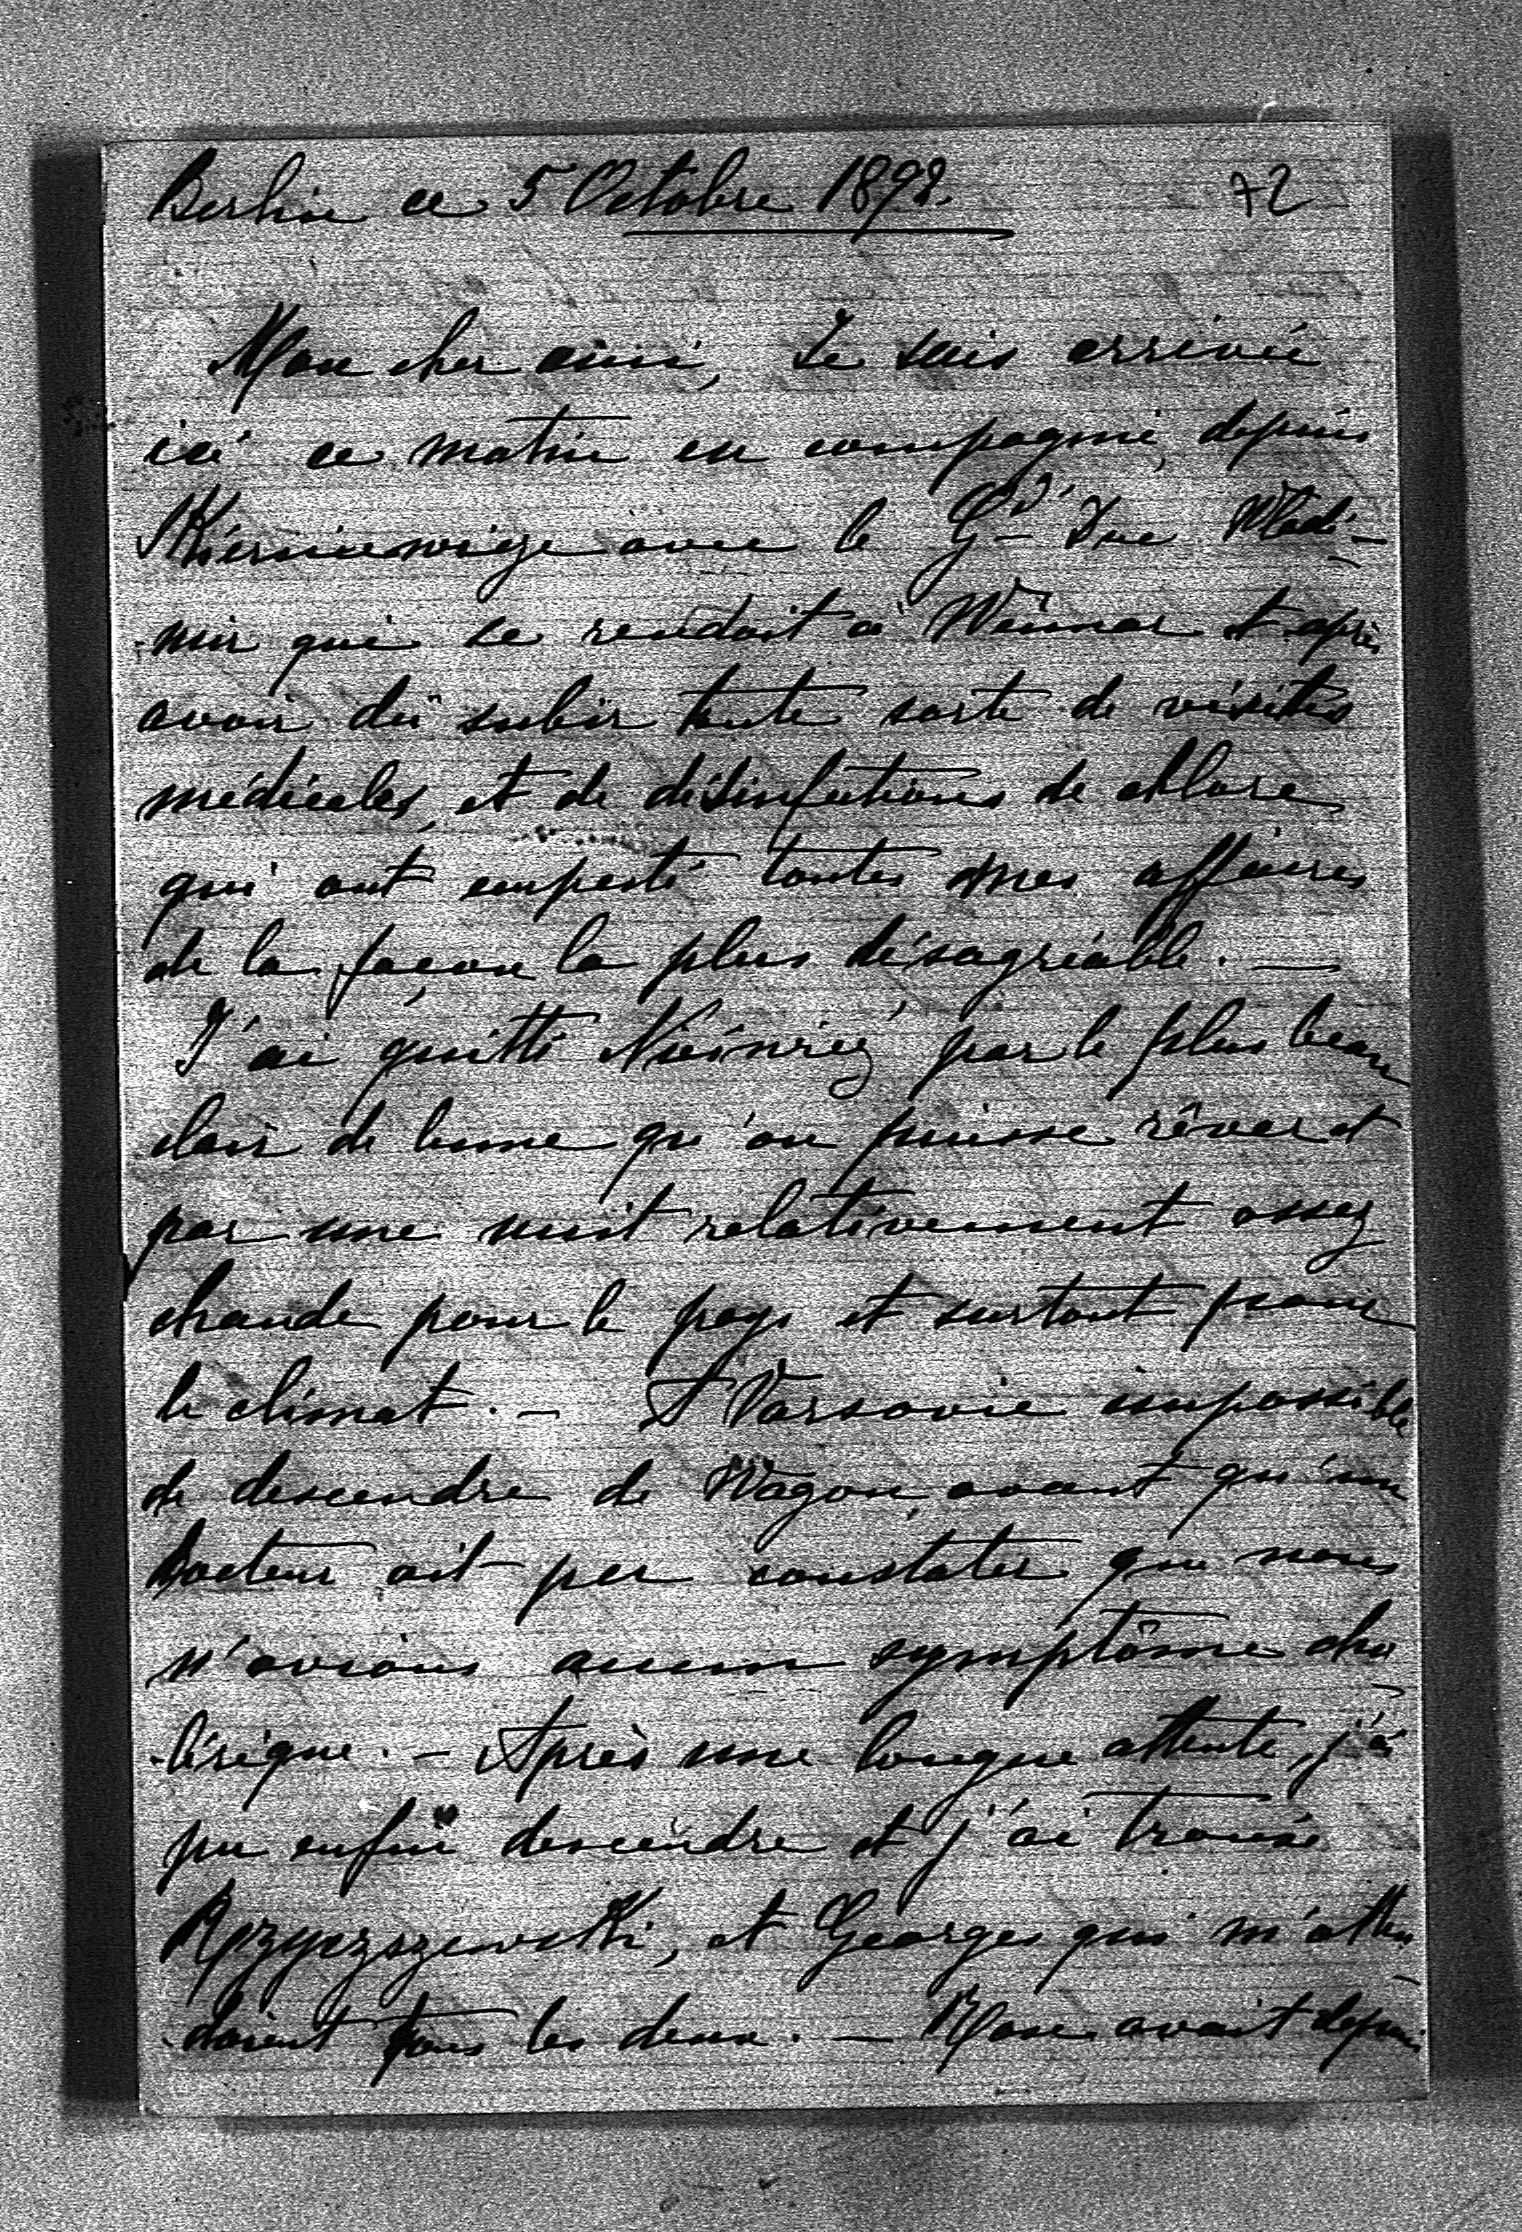 Berlin ce 5 Octobre 1892.
72
Mon cher ami, Je suis arrivée
ici ce matin en compagnie, depuis
Skierniewieze avec le Gd Duc Wladi-
-mir qui se rendait à Weimar et après
avoir dû subir toute sorte de visites
médicales, et de désinfections de chlore
qui ont empesté toutes mes affaires
de la façon la plus désagréable. —
J'ai quitté par le plus beau
clair de lune qu'on puisse rêver et
par une nuit relativement assez
chaude pour le pays et surtout pour
le climat. — A Varsovie impossible
de descendre de Wagon, avant qu'un
Docteur ait pu constater que nous
n'avions aucun symptôme cho
-lérique. — Après une longue attente, j'ai
pu enfin descendre et j'ai trouvé
et Georges qui m'atten
-daient tous les deux. — Rose avait depuis